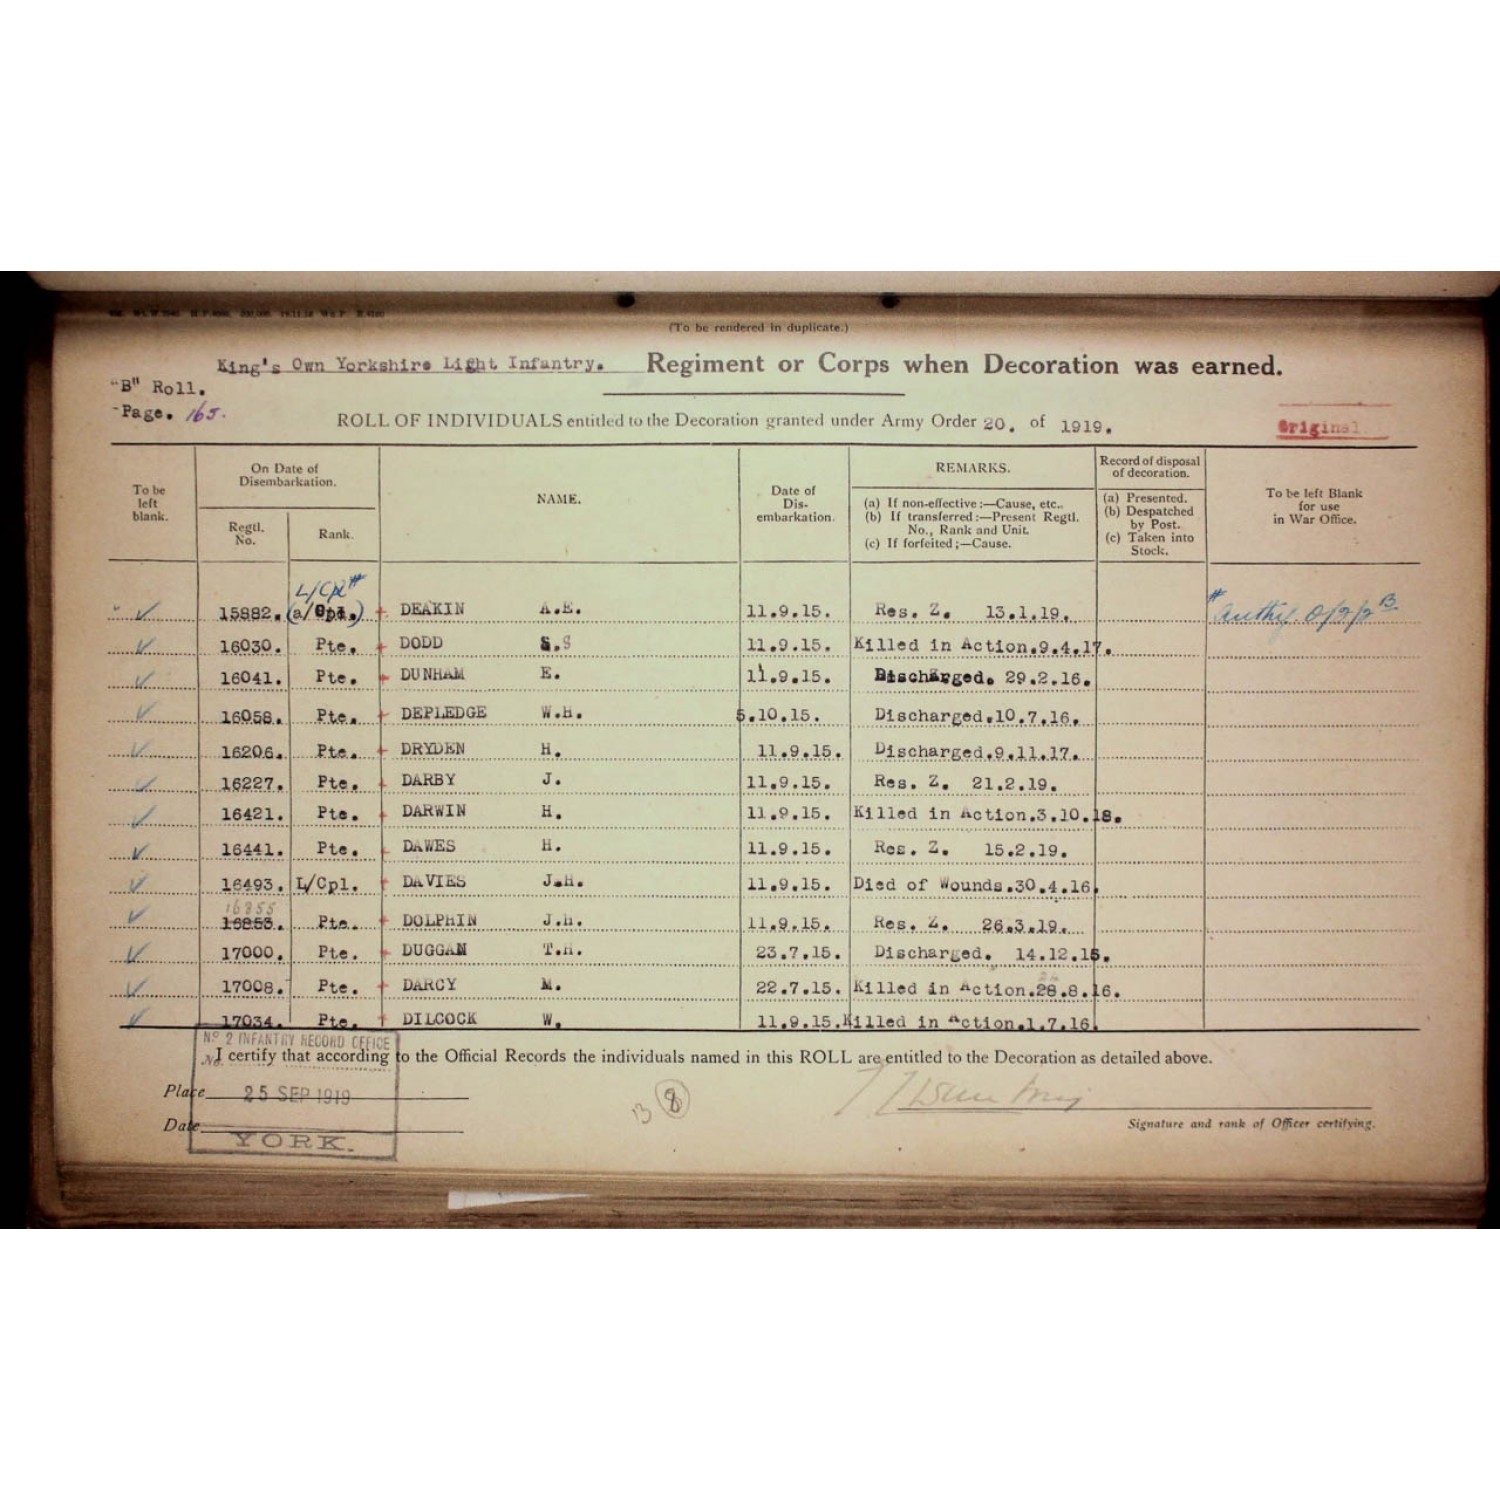 (To be rendered in duplicate.)
King's Own Yorkshire Light Infantry. Regiment or Corps when Decoration was earned.
"B" Roll.
Page. 165.
ROLL OF INDIVIDUALS entitled to the Decoration granted under Army Order 20. of 1919.
Original
To be left blank.
On Date of Disembarkation.
Regtl. No.
Rank.
NAME.
Date of Dis-embarkation.
REMARKS.
(a) If non-effective:—Cause, etc..
(b) If transferred:—Present Regtl. No., Rank and Unit.
(c) If forfeited;—Cause.
Record of disposal of decoration.
(a) Presented.
(b) Despatched by Post.
(c) Taken into Stock.
To be left Blank for use in War Office.
L/Cpl #
15882. (a/Cpl.) + DEAKIN A.E. 11.9.15. Res. Z. 13.1.19. # Authy. 0/2/2 B
16030. Pte. + DODD S.S 11.9.15. Killed in Action.9.4.17.
16041. Pte. + DUNHAM E. 11.9.15. Discharged. 29.2.16.
16058. Pte. + DEPLEDGE W.H. 5.10.15. Discharged.10.7.16.
16206. Pte. + DRYDEN H. 11.9.15. Discharged.9.11.17.
16227. Pte. + DARBY J. 11.9.15. Res. Z. 21.2.19.
16421. Pte. + DARWIN H. 11.9.15. Killed in Action.3.10.18.
16441. Pte. + DAWES H. 11.9.15. Res. Z. 15.2.19.
16493. L/Cpl. + DAVIES J.H. 11.9.15. Died of Wounds.30.4.16.
16855
16853. Pte. + DOLPHIN J.H. 11.9.15. Res. Z. 26.3.19.
17000. Pte. + DUGGAN T.H. 23.7.15. Discharged. 14.12.15.
17008. Pte. + DARCY M. 22.7.15. Killed in Action.28.8.16.
17034. Pte. + DILCOCK W. 11.9.15. Killed in Action.1.7.16.
No 2 INFANTRY RECORD OFFICE
I certify that according to the Official Records the individuals named in this ROLL are entitled to the Decoration as detailed above.
Place 25 SEP 1919
13 8
Signature and rank of Officer certifying.
Date YORK.